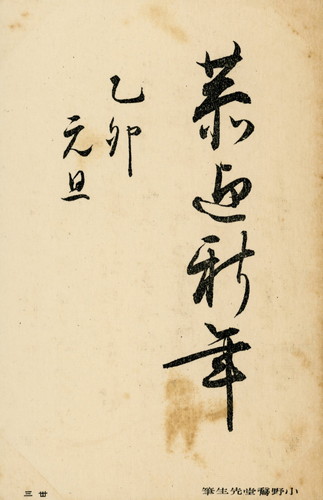 恭迎新年
乙卯
元旦
小野鵞堂先生筆
丗三